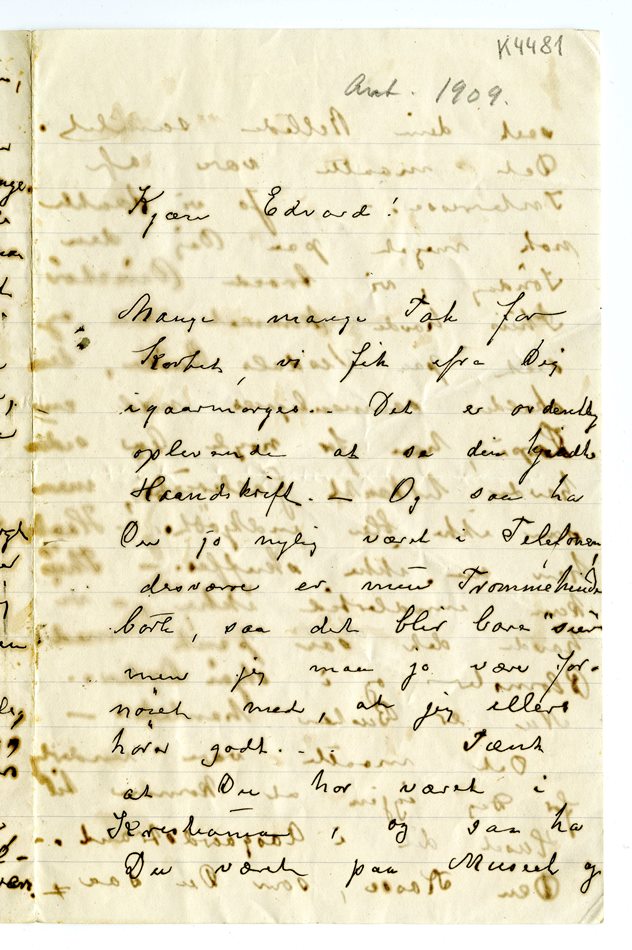 K4481
Ant. 1909.
Kjære Edvard!
Mange mange Tak for
Kortet, vi fik ifra Dig
igaarmorges. – Det er ordentlig
oplevende at se din kjendte
Haandskrift. – Og saa ha
Du jo nylig været i Telefonen,
desværre er min Trommehinde
borte, saa det blir bare
men jeg maa jo være for-
nöiet med, at jeg ellers
hörer godt. – . Tænk
at Du har været i
Kristiania, og saa ha
Du været paa Museet og